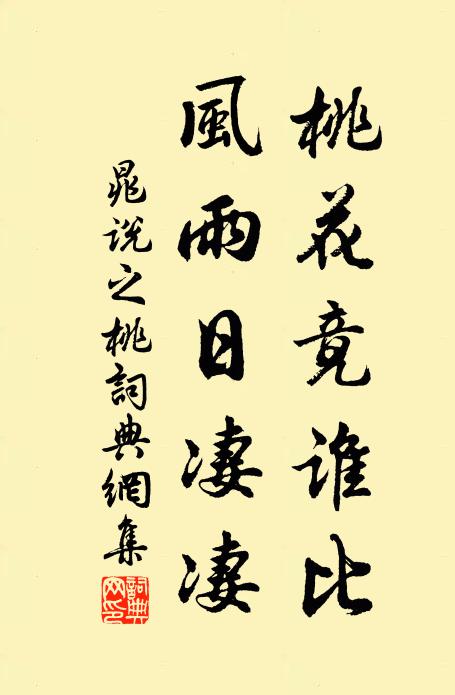 桃花竟谁比
風雨日凄凄
晁说之桃詞典網集
詞典网印